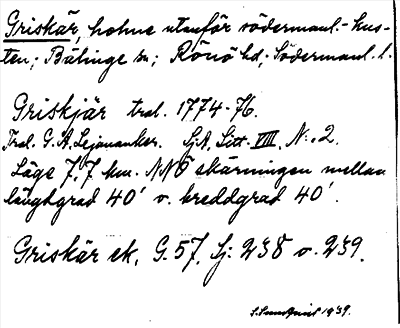 Griskär, holme utanför södermanl:- kus-
ten; Bälinge sn; Rönö hd; Södermanl. l.
Griskjär tral. 1774-76.
Tral. G. A. Lejonanker. SjA, Litt. VIII, N:o 2.
Läge 7.7 km. NNÖ skärningen mellan
längdgrad 40' o. breddgrad 40'.
Griskär ek, G. 57, Sj: 238 o. 239.
S. Sundqvist 1939.